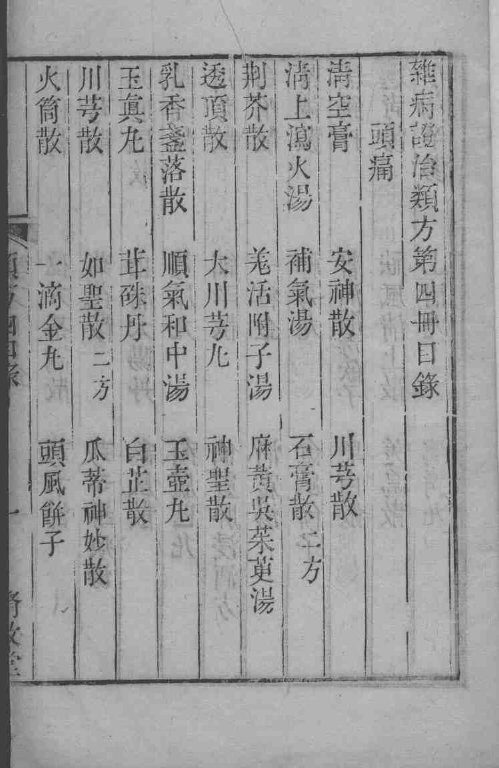 雜病證治類方第四冊目錄
頭痛
清空膏 安神散 川芎散
清上瀉火湯 補氣湯 石膏散二方
荆芥散 羗活附子湯 麻黄吳茱萸湯
透頂散 大川芎丸 神聖散
乳香盞落散 順氣和中湯 玉壺丸
玉真丸 茸硃丹 白芷散
川芎散 如聖散二方 瓜蒂神妙散
火筒散 一滴金丸 頭風餅子
類方四目錄 一